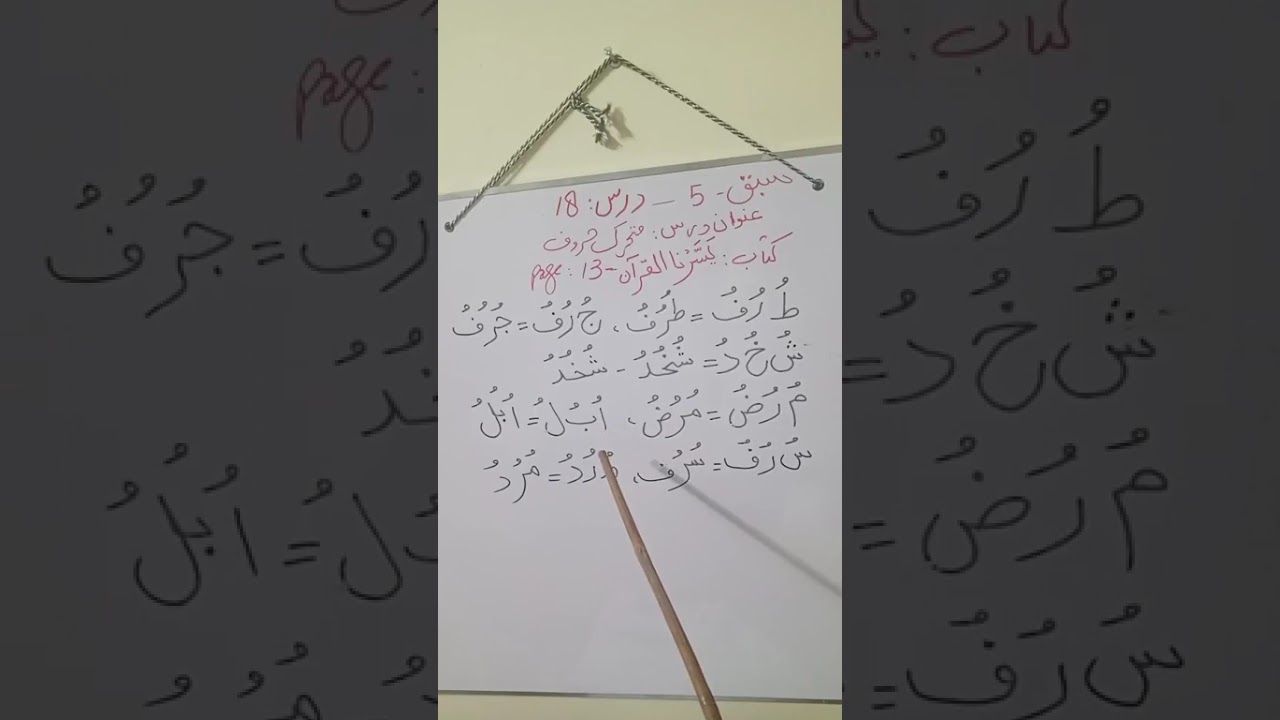 سبق - 5 - درس: 18
عنوان درس: متحرک حروف
کتاب: یَسَّرْنَا القرآن - page: 13
طُ رُ فُ = طُرُفُ ، جُ رُ فُ = جُرُفُ
شُ خُ دُ = شُخُدُ - شُخُدُ
مُ رُ ضُ = مُرُضُ ، اُ بُ لُ = اُبُلُ
سُ رُ فُ = سُرُفُ ، مُ رُ دُ = مُرُدُ